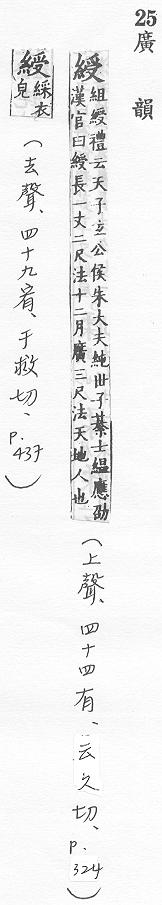 25 廣韻
綬 組綬禮云天子玄公侯朱大夫純世子綦士縕應劭
漢官曰綬長一丈二尺法十二月廣三尺法天地人也
(上聲、四十四有、云久切、p.324)
綬 綵衣
皃
(去聲、四十九宥、于救切、p.437)